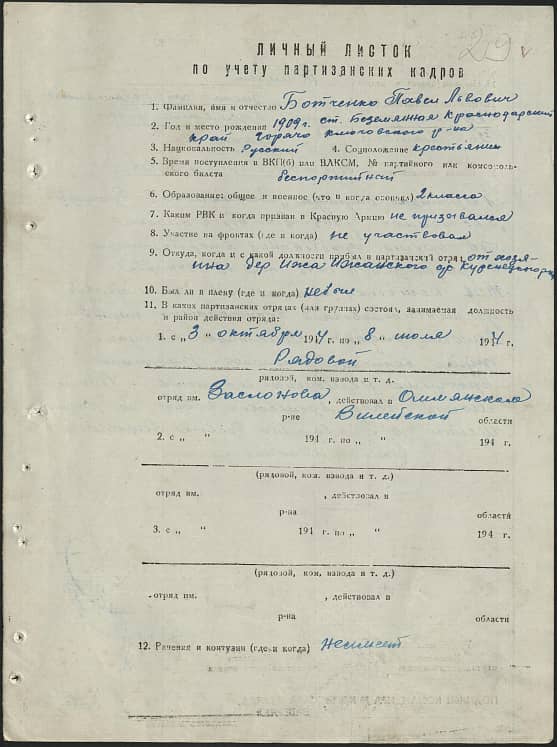 29 v
ЛИЧНЫЙ ЛИСТОК
по учету партизанских кадров
1. Фамилия, имя и отчество Ботченко Павел Львович
2. Год и место рождения 1909г. ст. Беземянная Краснодарский
край горяче ключовского р-на
3. Национальность Русский 4. Соцположение крестьянин
5. Время поступления в ВКП(б) или ВЛКСМ, № партийного или комсомоль-
ского билета беспартийный
6. Образование: общее и военное (что и когда окончил) 2 класса
7. Каким РВК и когда призван в Красную Армию не призывался
8. Участие на фронтах (где и когда) не участвовал
9. Откуда, когда и с какой должности прибыл в партизанский отряд от хозя-
ина дер Ижа Ижанского
10. Был ли в плену (где и когда) не был
11. В каких партизанских отрядах (или группах) состоял, занимаемая должность
и район действия отряда:
1. с „ 3 " октября 194 г. по „ 8 " июля 194 г.
Рядовой
рядовой, ком. взвода и т. д.
отряд им. Заслонова, действовал в
р-не Вилейской области
2. с „ " 194 г. по „ " 194 г.
(рядовой, ком. взвода и т. д.)
отряд им. , действовал в
р-на области
3. с „ " 194 г. по „ " 194 г.
(рядовой, ком. взвода и т. д.)
отряд им. , действовал в
р-на области
12. Ранения и контузии (где и когда) не имеет